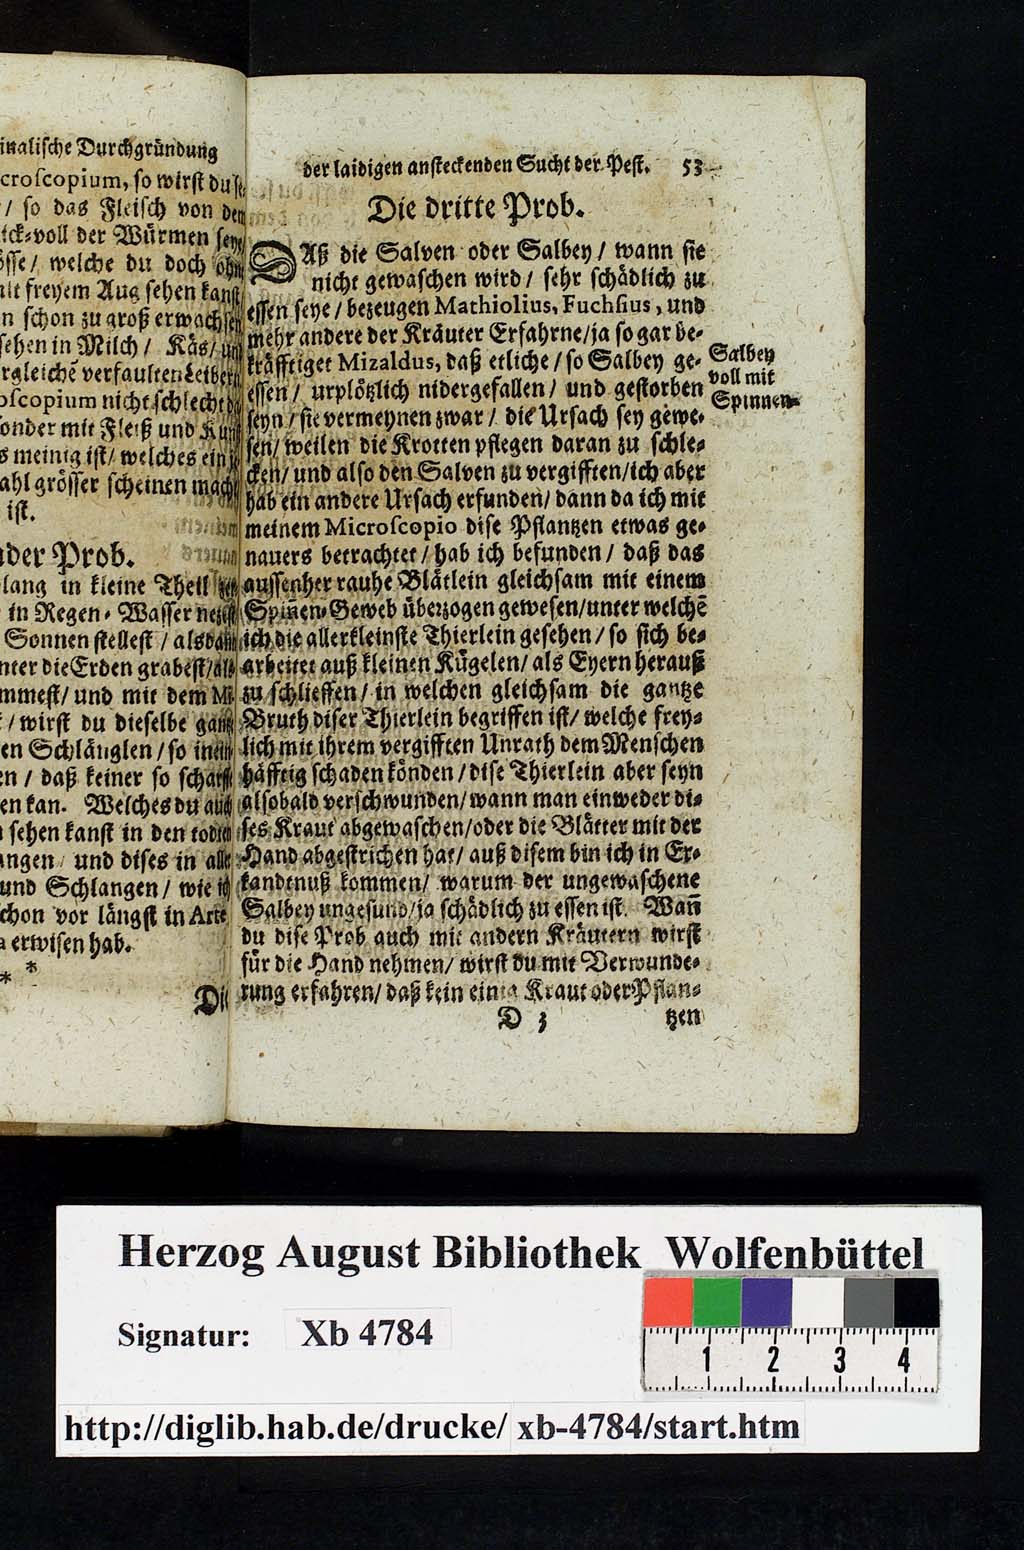 inalische Durchgründung
croscopium, so wirst du
/ so das Fleisch von dem
ick-voll der Würmen seye
össe / welche du doch
mit freyem Aug sehen kanst
n schon zu groß erwachsen
sehen in Milch / Käs /
rgleichē verfaulten Leibern
oscopium nicht schlecht
sonder mit Fleiß und
s meinig ist / welches ein
ahl grösser scheinen
ist.
nder Prob.
lang in kleine Theil
in Regen-Wasser
Sonnen stellest / alsdann
nter die Erden grabest /
mmest / und mit dem Mi
/ wirst du dieselbe
en Schlänglen / so
en / daß keiner so
en kan. Welches du auch
sehen kanst in den todten
angen / und dises in
und Schlangen / wie ich
schon vor längst in Arte
a erwisen hab.
* *
Die
der laidigen ansteckenden Sucht der Pest. 53
Die dritte Prob.
DAß die Salven oder Salbey / wann sie
nicht gewaschen wird / sehr schädlich zu
essen seye / bezeugen Mathiolius, Fuchsius, und
mehr andere der Kräuter Erfahrne / ja so gar be-
kräfftiget Mizaldus, daß etliche / so Salbey ge-
essen / urplötzlich nidergefallen / und gestorben
seyn / sie vermeynen zwar / die Ursach sey gewe-
sen / weilen die Krotten pflegen daran zu schle-
cken / und also den Salven zu vergifften / ich aber
hab ein andere Ursach erfunden / dann da ich mit
meinem Microscopio dise Pflantzen etwas ge-
nauers betrachtet / hab ich befunden / daß das
aussenher rauhe Blätlein gleichsam mit einem
Spiñen-Geweb überzogen gewesen / unter welchē
ich die allerkleinste Thierlein gesehen / so sich be-
arbeitet auß kleinen Kügelen / als Eyern herauß
zu schlieffen / in welchen gleichsam die gantze
Bruth diser Thierlein begriffen ist / welche frey-
lich mit ihrem vergifften Unrath dem Menschen
häfftig schaden könden / dise Thierlein aber seyn
alsobald verschwunden / wann man einweder di-
ses Kraut abgewaschen / oder die Blätter mit der
Hand abgestrichen hat / auß disem bin ich in Er-
kandtnuß kommen / warum der ungewaschene
Salbey ungesund / ja schädlich zu essen ist. Wañ
du dise Prob auch mit andern Kräutern wirst
für die Hand nehmen / wirst du mit Verwunde-
rung erfahren / daß kein einig Kraut oder Pflan-
D 3 tzen
Salbey
voll mit
Spinnen.
Herzog August Bibliothek Wolfenbüttel
Signatur: Xb 4784
1 2 3 4
http://diglib.hab.de/drucke/ xb-4784/start.htm